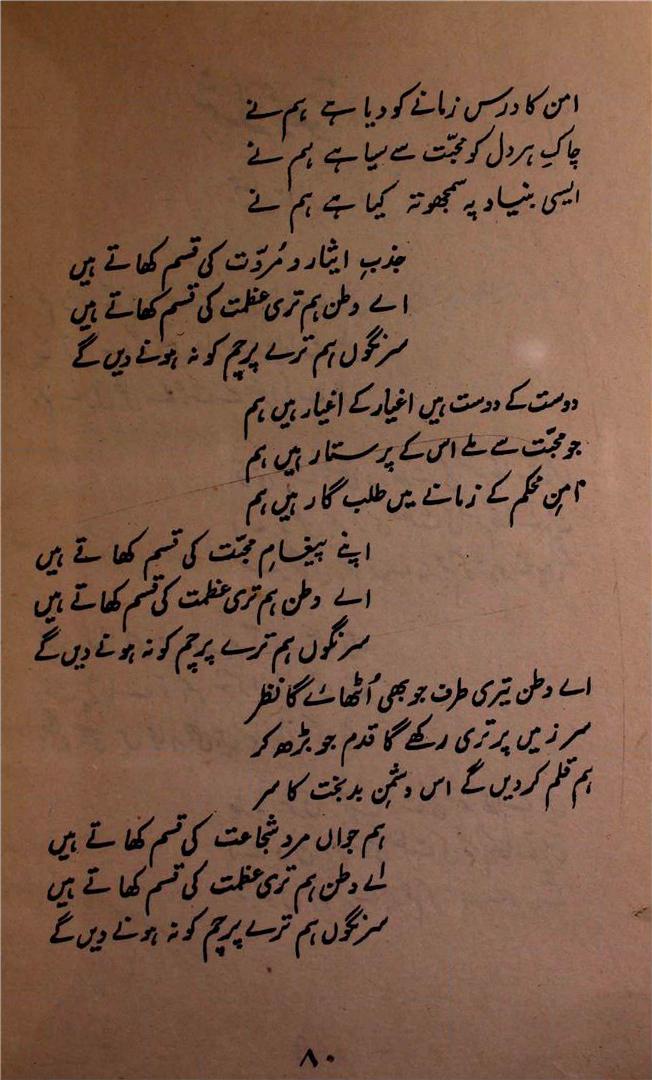 امن کا درس زمانے کو دیا ہے ہم نے
چاکِ ہر دل کو محبّت سے سیا ہے ہم نے
ایسی بنیاد پہ سمجھوتہ کیا ہے ہم نے
جذبِ ایثار و مُروّت کی قسم کھاتے ہیں
اے وطن ہم تری عظمت کی قسم کھاتے ہیں
سرنگوں ہم ترے پرچم کو نہ ہونے دیں گے
دوست کے دوست ہیں اغیار کے اغیار ہیں ہم
جو محبّت سے ملے اس کے پرستار ہیں ہم
امنِ محکم کے زمانے میں طلب گار ہیں ہم
اپنے پیغامِ محبّت کی قسم کھاتے ہیں
اے وطن ہم تری عظمت کی قسم کھاتے ہیں
سرنگوں ہم ترے پرچم کو نہ ہونے دیں گے
اے وطن تیری طرف جو بھی اُٹھائے گا نظر
سرزمیں پر تری رکھے گا قدم جو بڑھ کر
ہم قلم کر دیں گے اس دشمنِ بدبخت کا سر
ہم جواں مرد شجاعت کی قسم کھاتے ہیں
اے وطن ہم تری عظمت کی قسم کھاتے ہیں
سرنگوں ہم ترے پرچم کو نہ ہونے دیں گے
۸۰